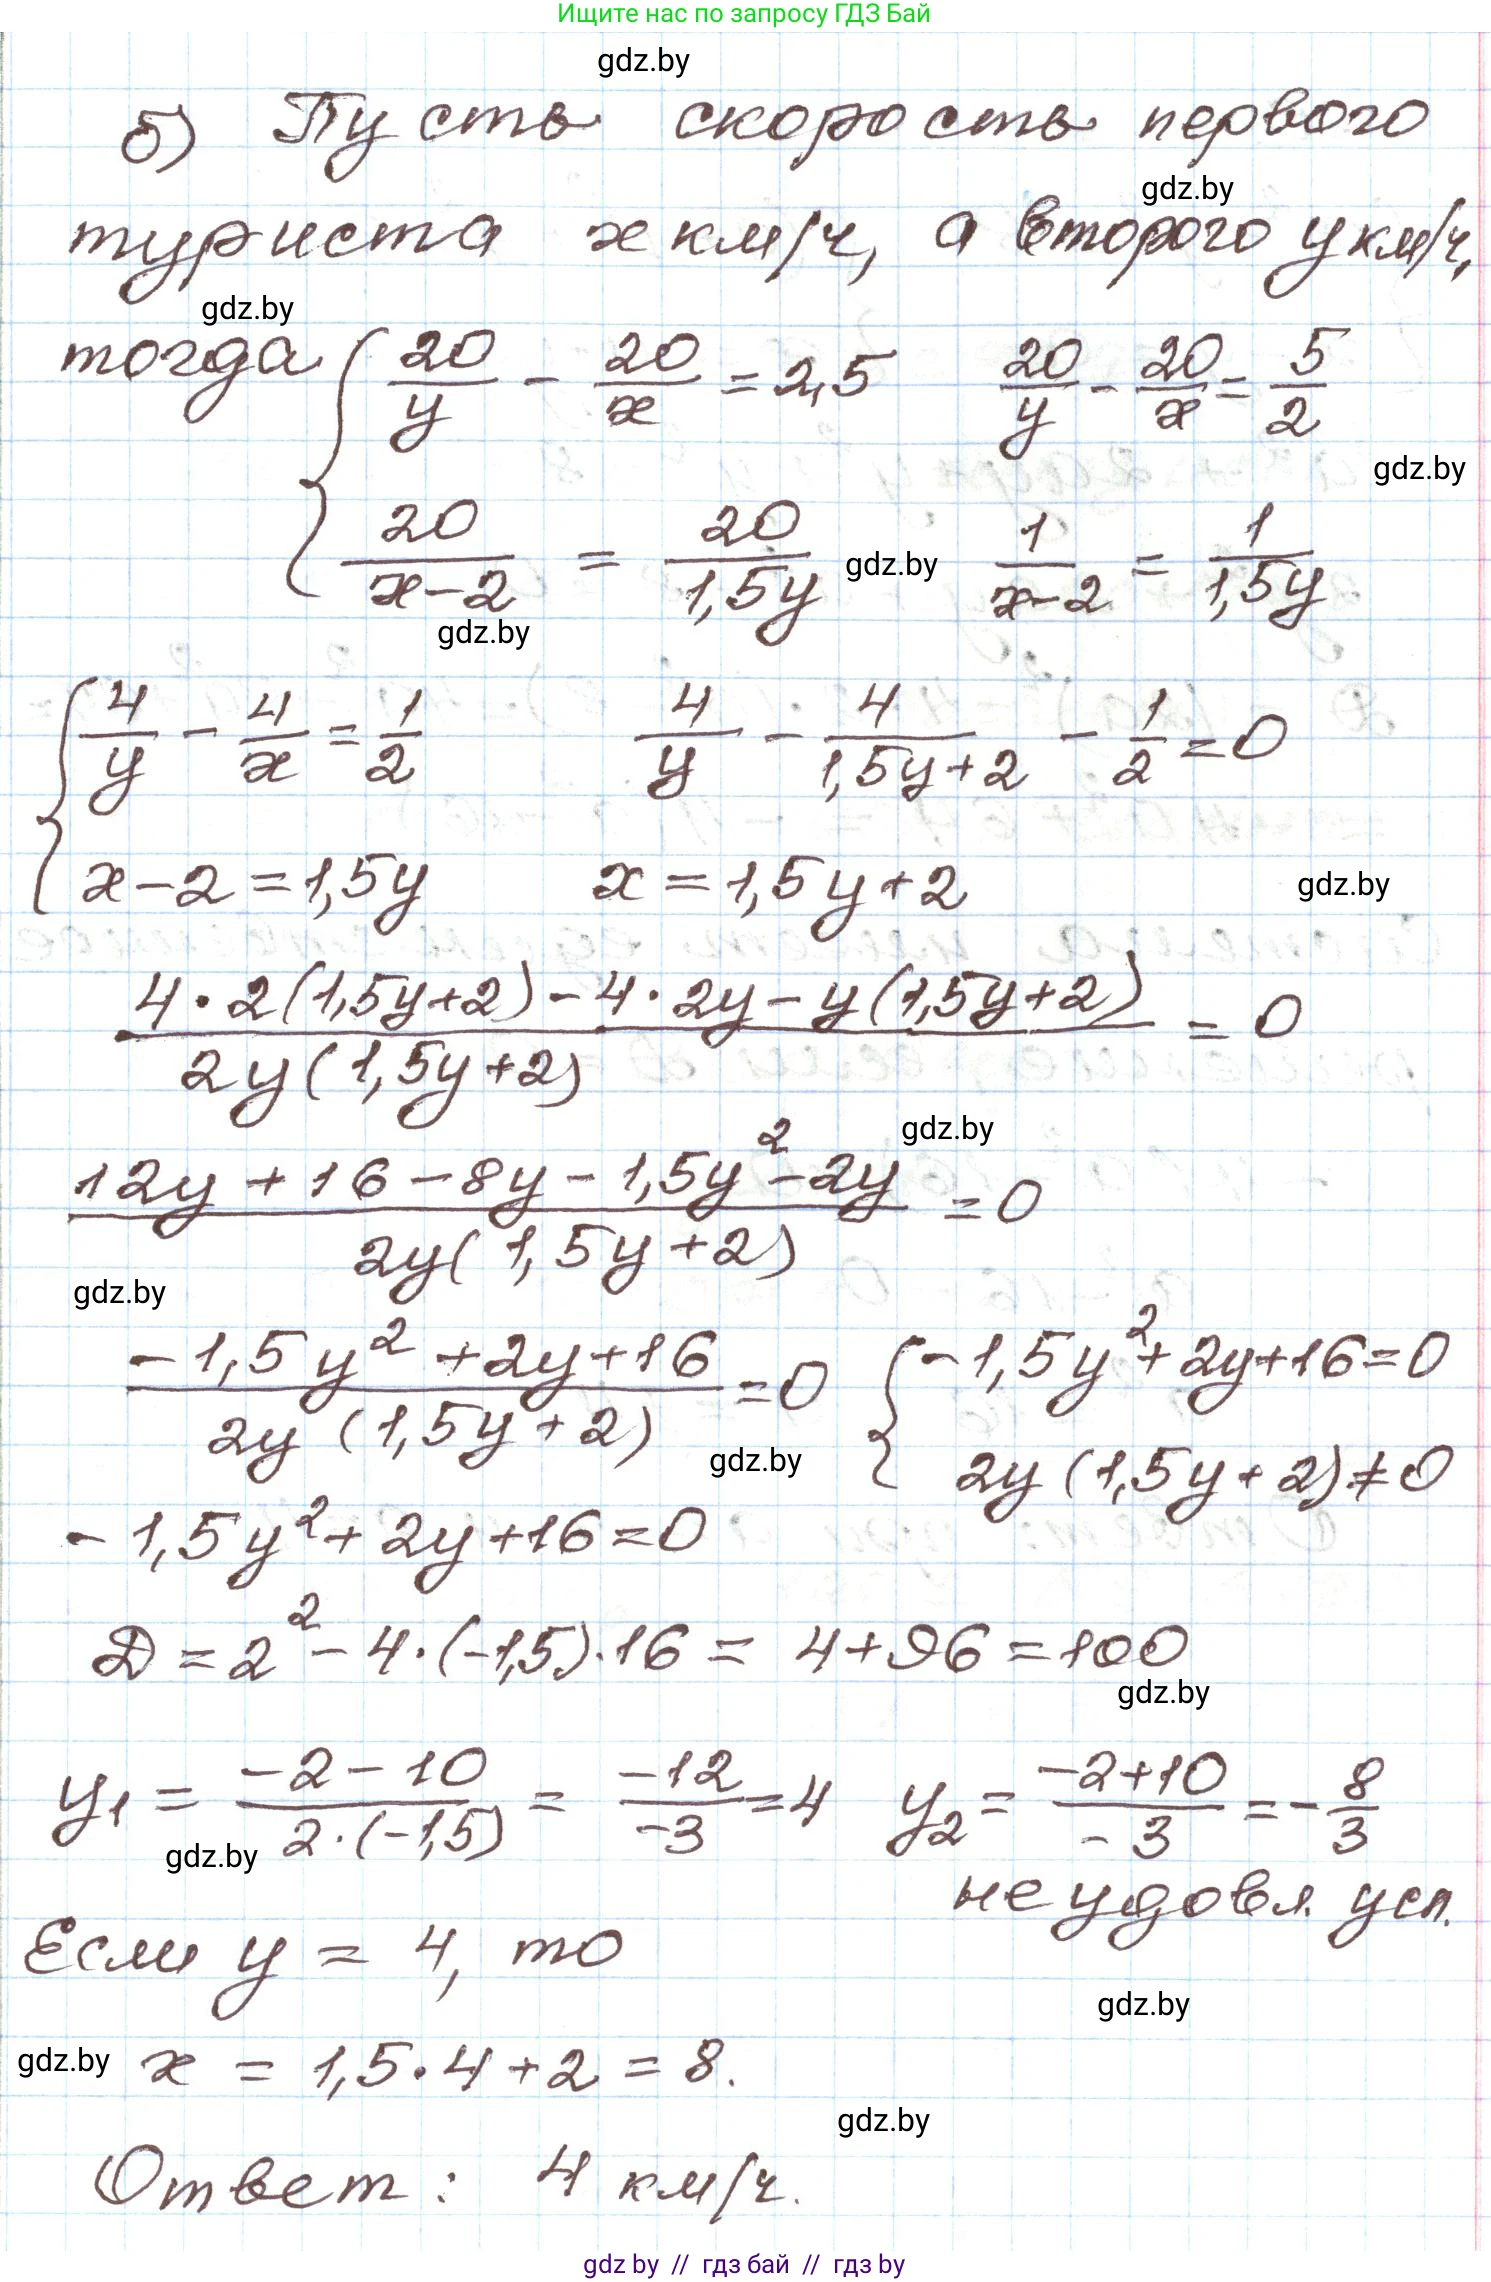 Ищите нас по запросу ГДЗ Бай
gdz.by
б) Пусть скорость первого
gdz.by
туриста x км/ч, а второго y км/ч,
gdz.by
тогда { 20/y - 20/x = 2,5   20/y - 20/x = 5/2
gdz.by
20/(x-2) = 20/1,5y   gdz.by   1/(x-2) = 1/1,5y
gdz.by
{ 4/y - 4/x = 1/2   4/y - 4/(1,5y+2) - 1/2 = 0
x-2 = 1,5y   x = 1,5y+2   gdz.by
(4·2(1,5y+2) - 4·2y - y(1,5y+2)) / (2y(1,5y+2)) = 0
gdz.by
(12y + 16 - 8y - 1,5y² - 2y) / (2y(1,5y+2)) = 0
gdz.by
(-1,5y² + 2y + 16) / (2y(1,5y+2)) = 0   { -1,5y² + 2y + 16 = 0
gdz.by   2y(1,5y+2) ≠ 0
-1,5y² + 2y + 16 = 0
D = 2² - 4·(-1,5)·16 = 4 + 96 = 100
gdz.by
y₁ = (-2-10)/(2·(-1,5)) = -12/-3 = 4   y₂ = (-2+10)/-3 = -8/3
gdz.by
не удовл. усл.
Если y = 4, то
gdz.by
gdz.by   x = 1,5·4 + 2 = 8.
gdz.by
Ответ: 4 км/ч.
gdz by // гдз бай // гдз by